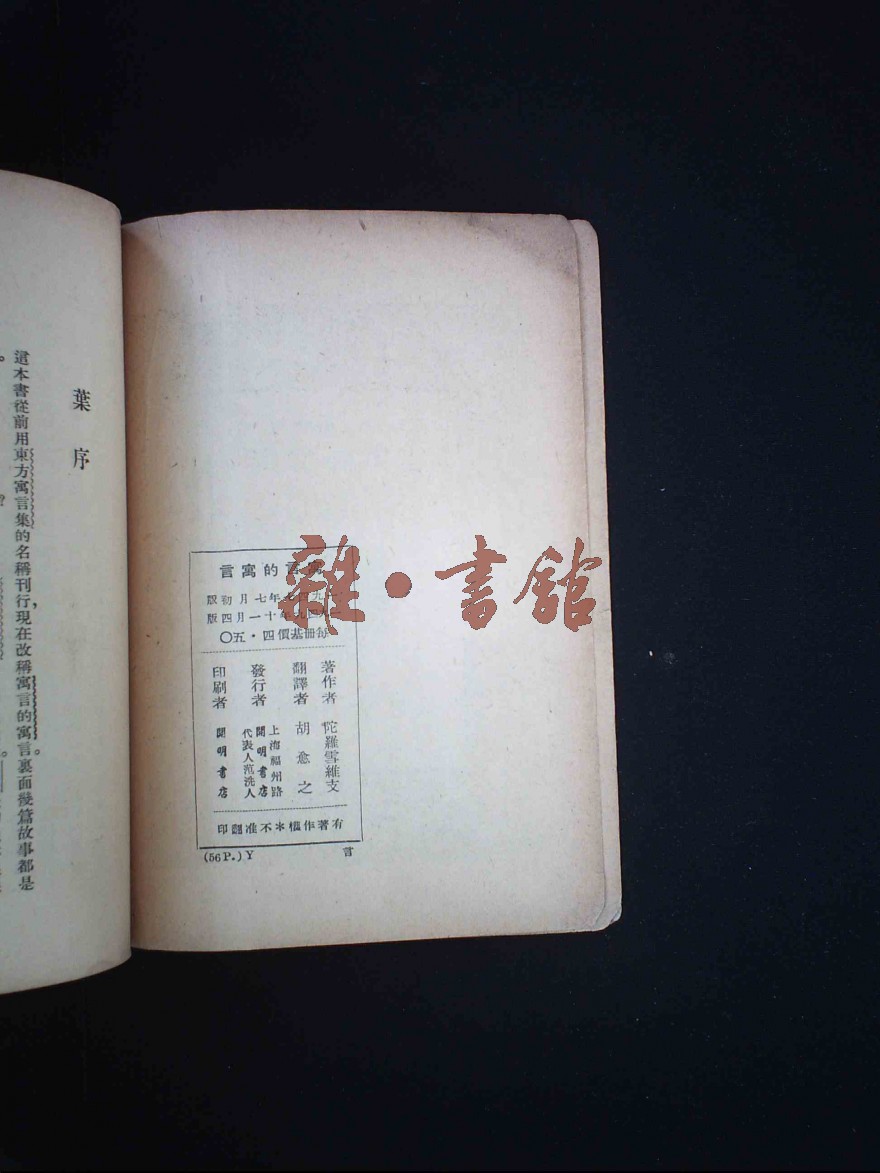 寓言的寓言
年七月初版
年十一月四版
每冊基價四·五〇
著作者 陀羅雪維支
翻譯者 胡愈之
發行者 上海福州路
開明書店
代表人范洗人
印刷者 開明書店
有著作權＊不准翻印
(56P.) Y 言
雜·書館
葉序
這本書從前用東方寓言集的名稱刊行，現在改稱寓言的寓言。裏面幾篇故事都是